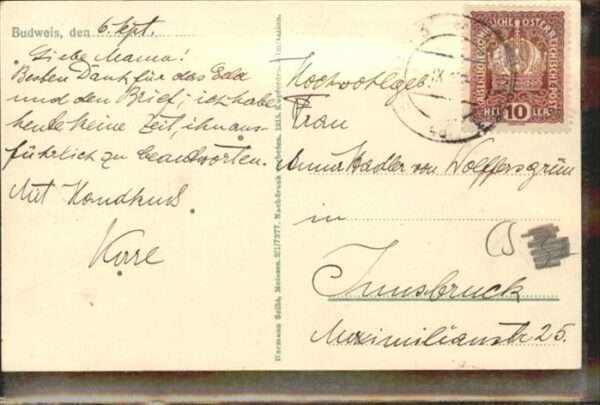 Budweis, den 6. Sept.
Liebe Mama!
Besten Dank für das Geld
und den Brief; ich habe
heute keine Zeit, ihn aus-
führlich zu beantworten.
Mit Handkuß
Hermann Seibt, Meissen. Nachdruck verboten. 1915.
KAISERLICHE KÖNIGLICHE ÖSTERREICHISCHE POST
HELLER 10 HELLER
Hochwohlgeb.
Frau
Anna Hadler von Wolffersgrün
in
Innsbruck
Maximilianstr 25.